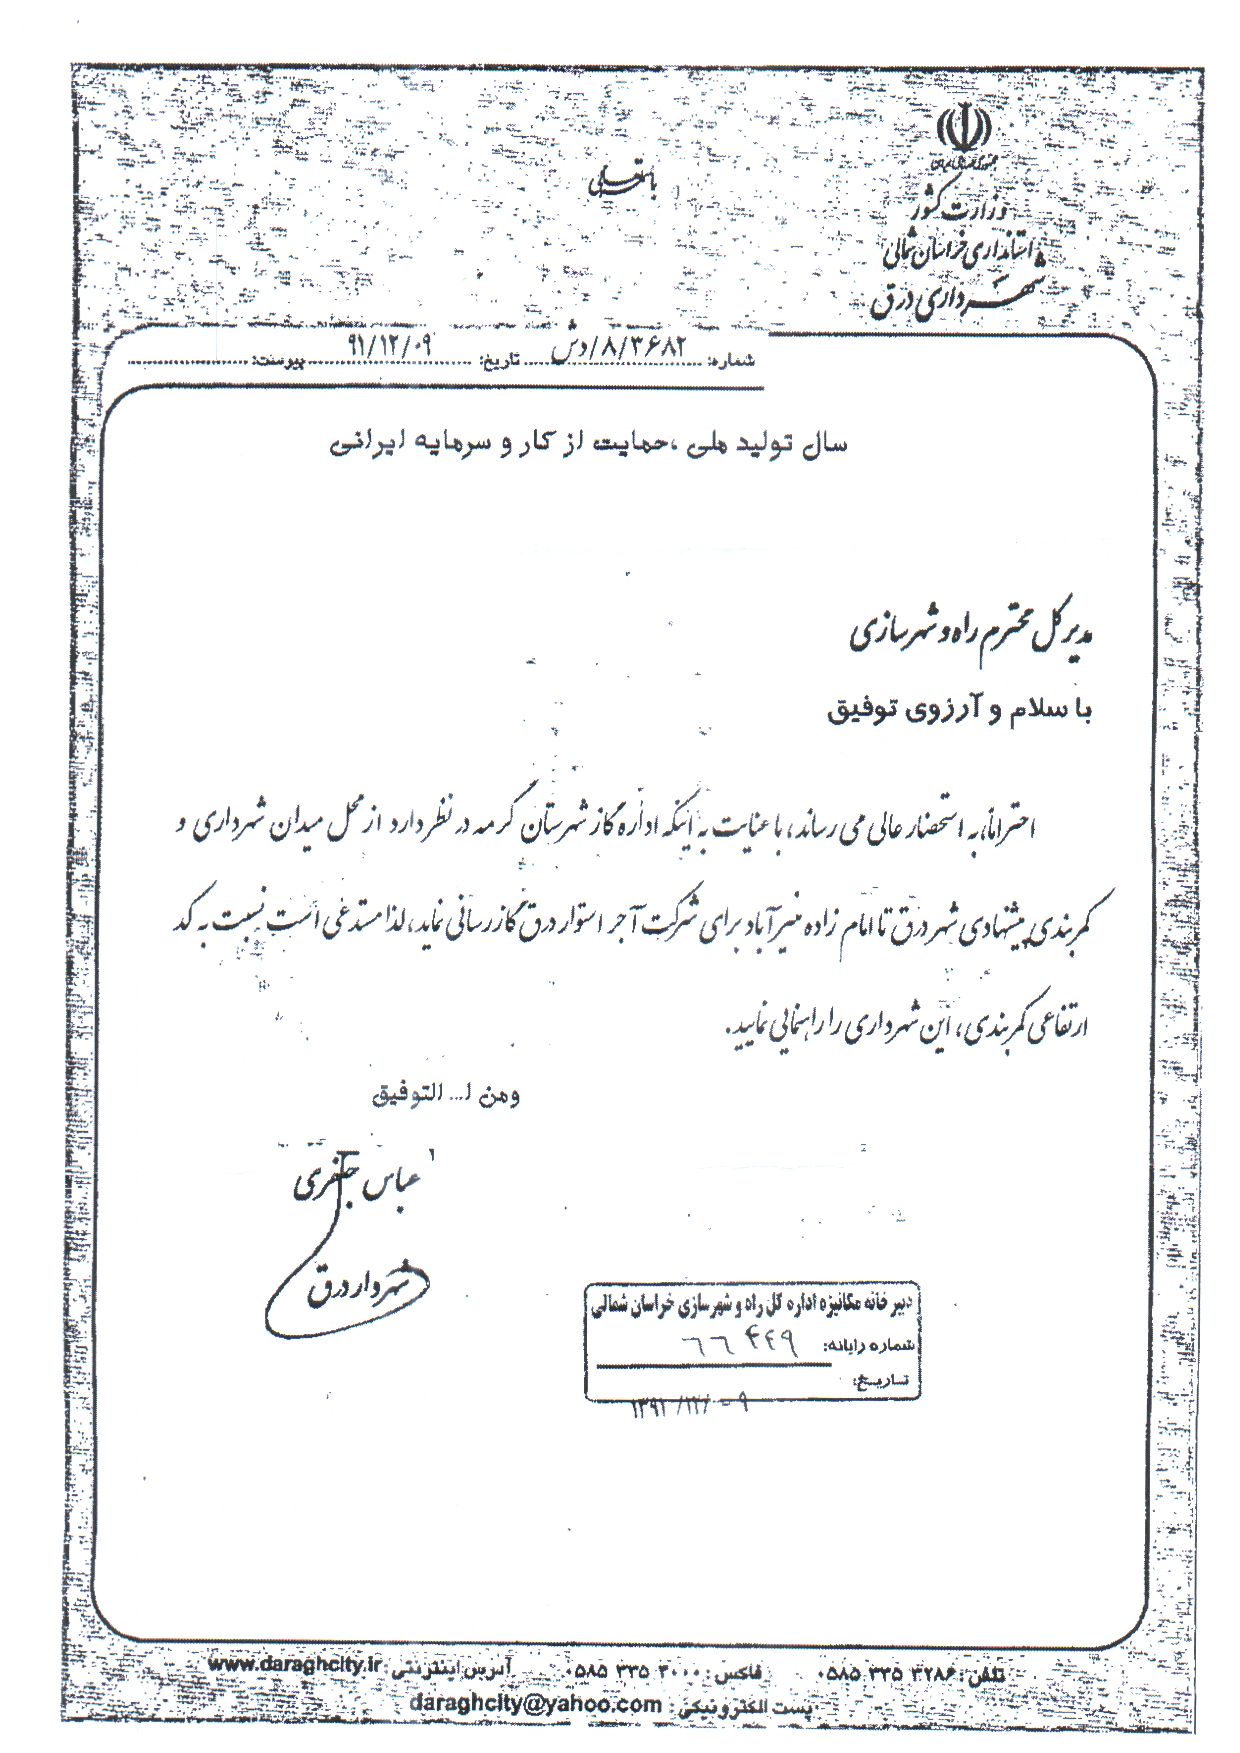 جمهوری اسلامی ایران
وزارت کشور
استانداری خراسان شمالی
شهرداری درق
باسمه تعالی
شماره: ۸/۳۶۸۲/دش تاریخ: ۹۱/۱۲/۰۹ پیوست:
سال تولید ملی ،حمایت از کار و سرمایه ایرانی
مدیر کل محترم راه و شهرسازی
با سلام و آرزوی توفیق
احتراماً، به استحضار عالی می رساند، با عنایت به اینکه اداره گاز شهرستان گرمه در نظر دارد از محل میدان شهرداری و
کمربندی پیشنهادی شهر درق تا امام زاده منیرآباد برای شرکت آجر استوار درق گازرسانی نماید، لذا مستدعی است نسبت به کد
ارتفاعی کمربندی، این شهرداری را راهنمایی نمایید.
ومن ا... التوفیق
عباس جعفری
شهردار درق
دبیرخانه مکانیزه اداره کل راه و شهرسازی خراسان شمالی
شماره رایانه: ۶۶۴۴۹
تاریخ:
۱۳۹۱/۱۲/۰۹
تلفن: ۳۲۸۶ ۳۳۵ ۰۵۸۵ فاکس: ۳۰۰۰ ۳۳۵ ۰۵۸۵ آدرس اینترنتی: www.daraghcity.ir
پست الکترونیکی: daraghcity@yahoo.com